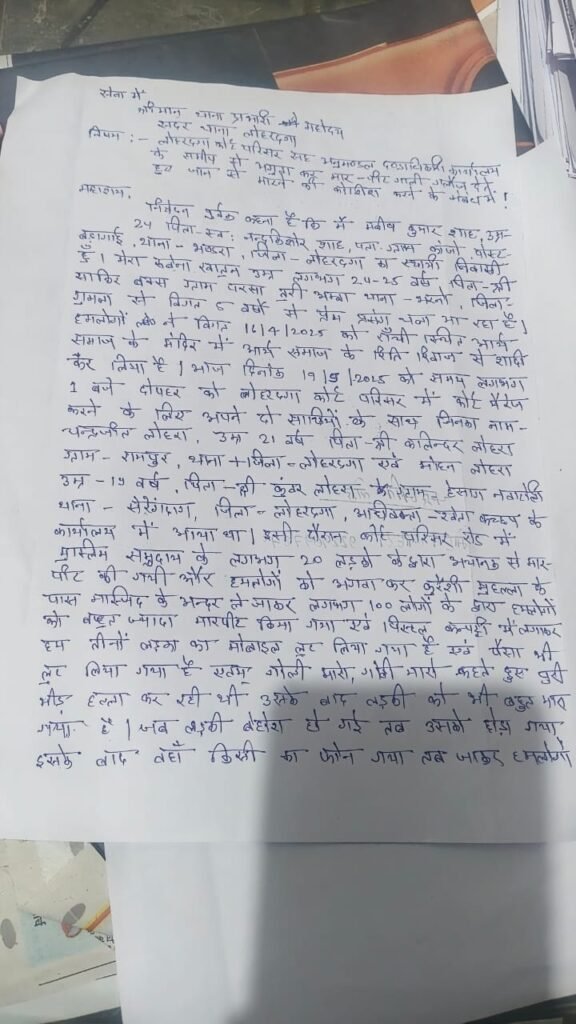 सेवा में
श्रीमान थाना प्रभारी महोदय
सदर थाना लोहरदगा
विषय :- लोहरदगा कोर्ट परिसर सह अनुमण्डल दण्डाधिकारी कार्यालय
के समीप से अगुवा कर मार-पीट गाली गलौज देते
हुए जान से मारने की कोशिश करने के संबंध में।
महाशय,
निवेदन पूर्वक कहना है कि मैं कुमार शाह, उम्र
24 पिता-स्व: चन्द्रकिशोर शाह, पता-ग्राम कोजो पोस्ट-
बड़ागाई, थाना- भंडरा, जिला-लोहरदगा का स्थायी निवासी
हूँ। मेरा खातून उम्र लगभग 24-25 वर्ष पिता-श्री
ग्राम पारसा थाना- जिला-
गुमला से विगत 5 वर्षों से प्रेम प्रसंग चला आ रहा है।
हमलोगों ने विगत 16/4/2025 को राँची स्थित आर्य
समाज के मंदिर में आर्य समाज के रिति रिवाज से शादी
कर लिया है। आज दिनांक 19/5/2025 को समय लगभग
1 बजे दोपहर को लोहरदगा कोर्ट परिसर में कोर्ट मैरेज
करने के लिए अपने दो साथियों के साथ जिनका नाम-
चन्द्रजीत लोहरा, उम्र 21 वर्ष पिता-श्री कालिन्दर लोहरा
ग्राम- रामपुर, थाना + जिला-लोहरदगा एवं मोहन लोहरा
उम्र-19 वर्ष, पिता-श्री लोहरा नवाटोली
थाना- सेरेंगदाग, जिला-लोहरदगा, अधिवक्ता - श्वेता कच्छप के
कार्यालय में आया था। इसी दौरान कोर्ट परिसर रोड में
मुस्लिम समुदाय के लगभग 20 लड़को के द्वारा अचानक से मार-
पीट की गयी और हमलोगों को अगवा कर कुरैशी मुहल्ला के
पास मास्जिद के अन्दर ले जाकर लगभग 100 लोगों के द्वारा हमलोगों
को बहुत ज्यादा मारपीट किया गया एवं पिस्टल कनपट्टी में लगाकर
हम तीनों लड़का का मोबाइल लूट लिया गया है एवं पैसा भी
लूट लिया गया है गोली मारो, गोली मारो कहते हुए पूरी
भीड़ हल्ला कर रही थी उसके बाद लड़की को भी बहुत मारा
गया है। जब लड़की बेहोश हो गई तब उसको छोड़ा गया
इसके बाद वहाँ किसी का फोन गया तब जाकर हमलोगों